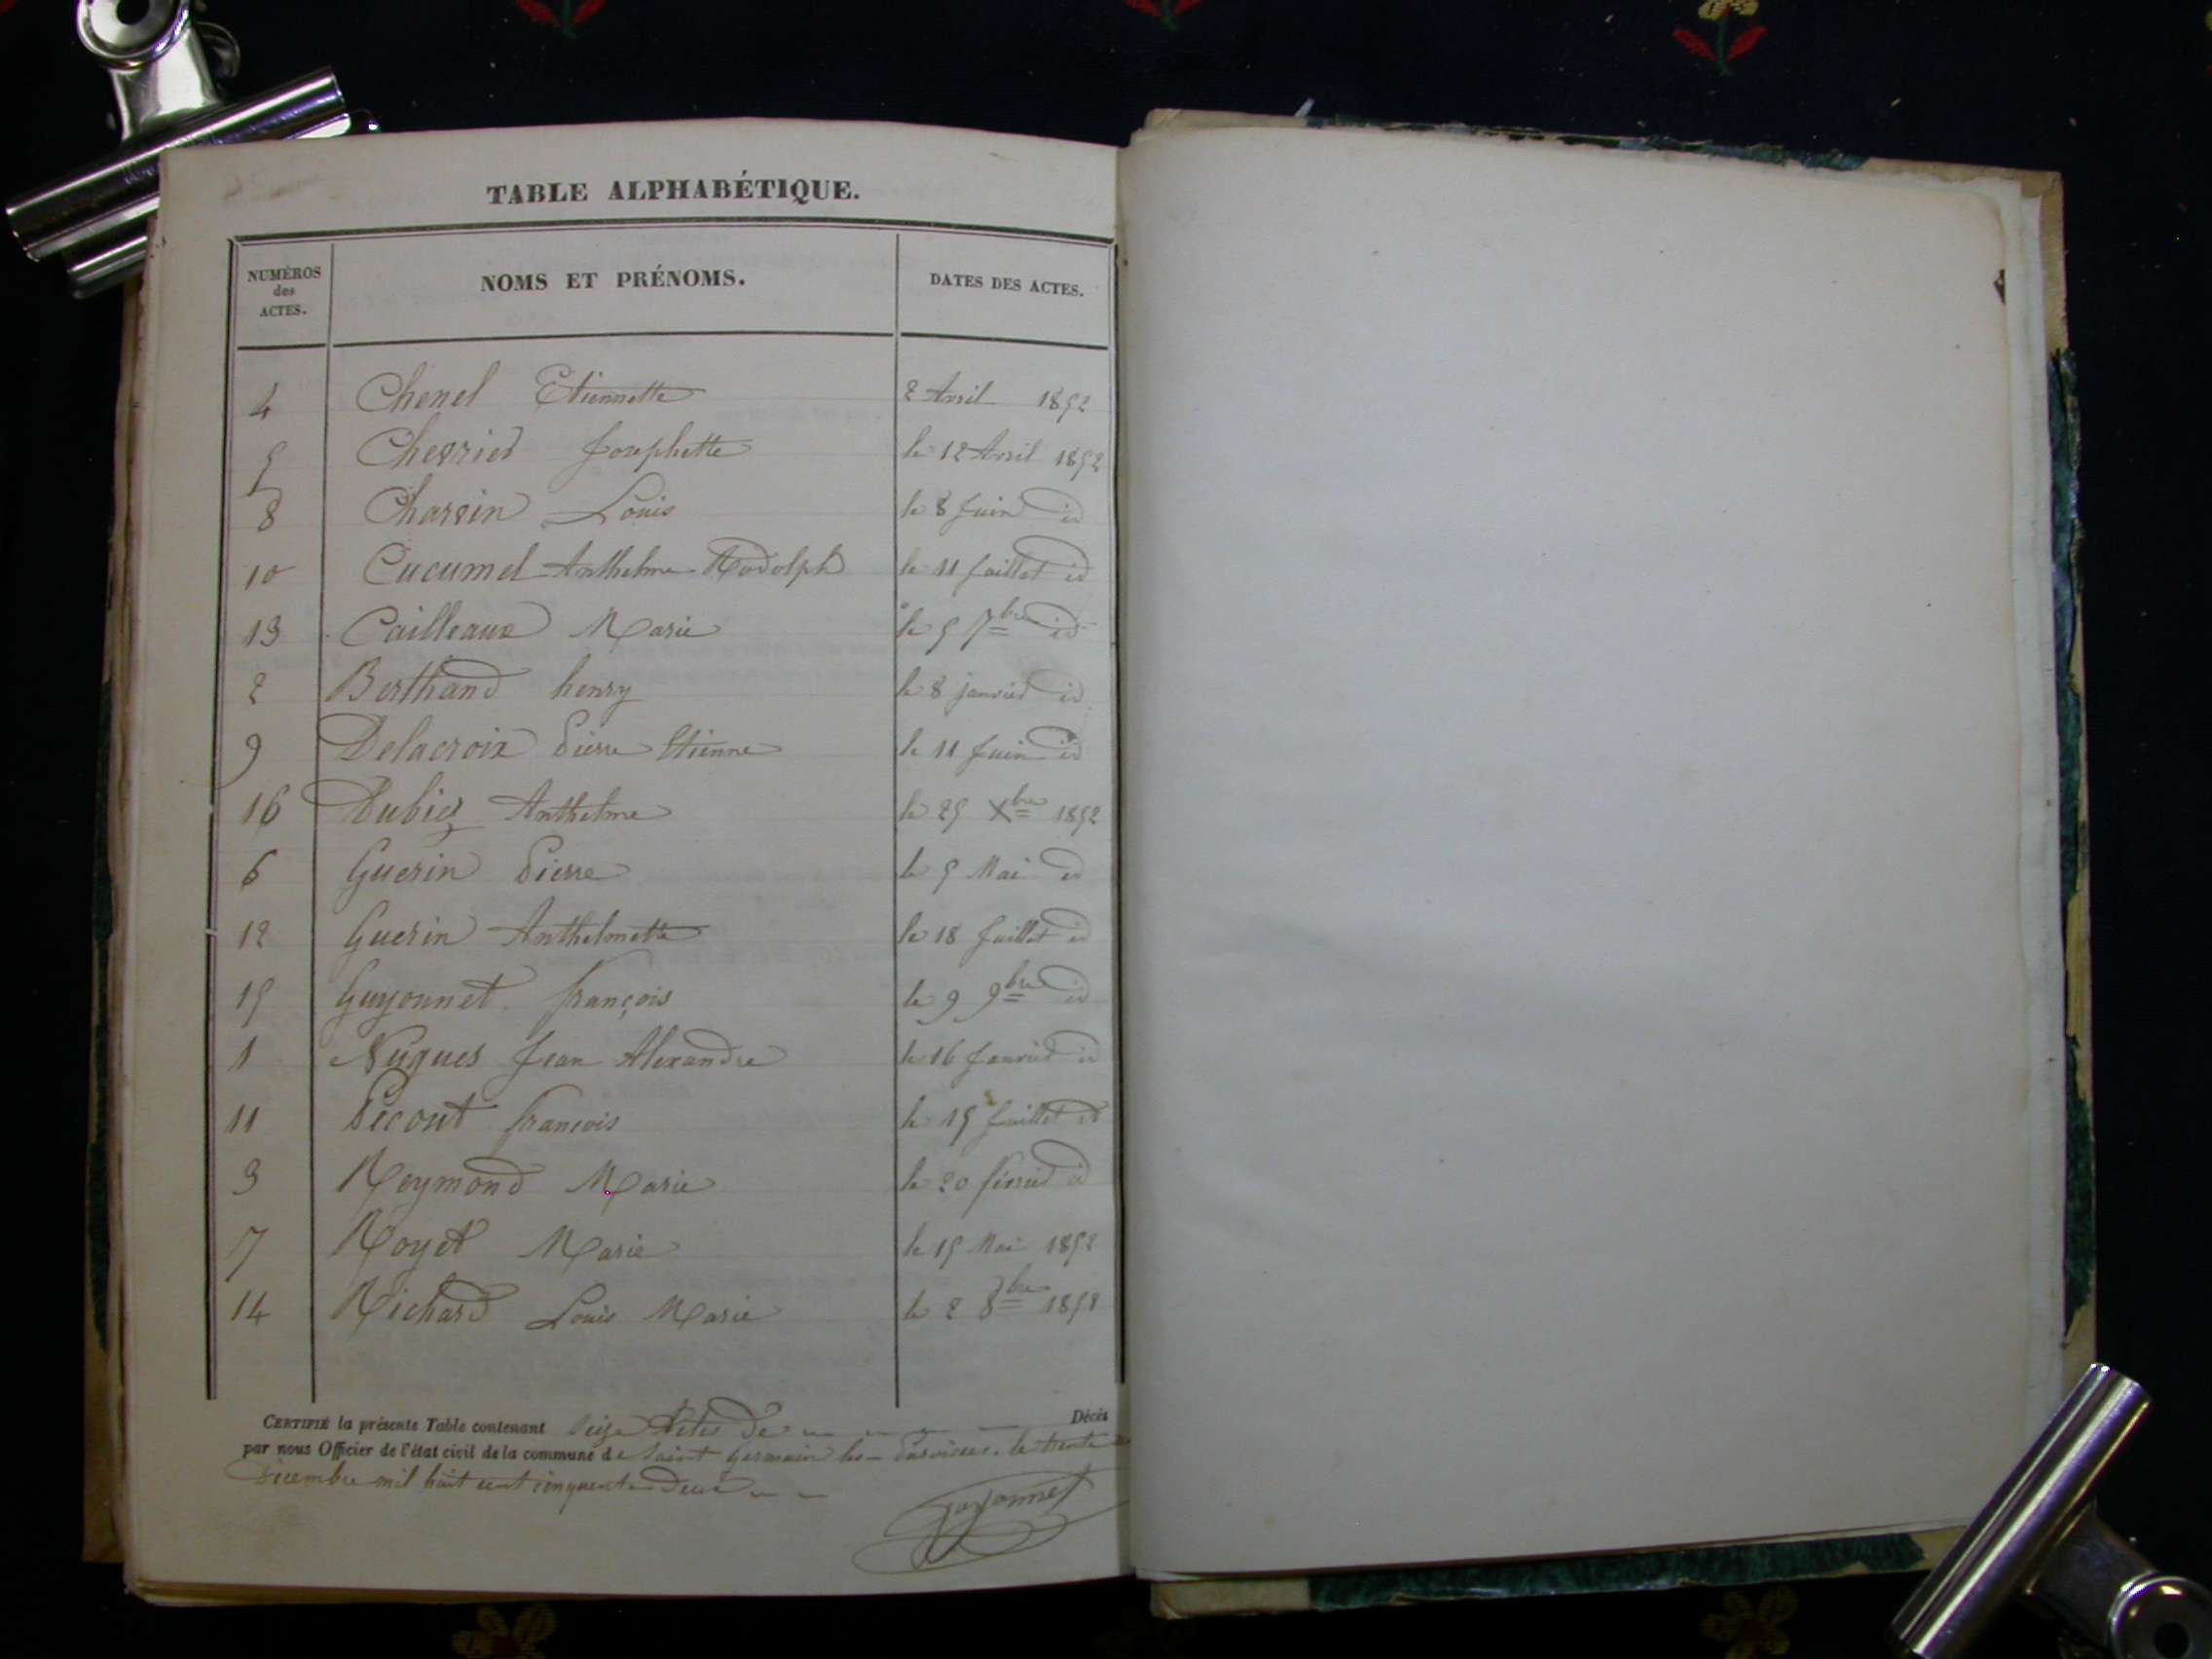 TABLE ALPHABÉTIQUE.
NUMÉROS
des
ACTES.
NOMS ET PRÉNOMS.
DATES DES ACTES.
4 Chenel Etiennette 2 Avril 1852
5 Chevrier Josephette le 12 Avril 1852
8 Charvin Louis le 8 Juin id
10 Cucumel Anthelme Rodolph le 11 Juillet id
13 Cailleaux Marie le 5 7bre id
2 Berthand henry le 8 janvier id
9 Delacroix Pierre Etienne le 11 Juin id
16 Dubiez Anthelme le 25 Xbre 1852
6 Guerin Pierre le 5 Mai id
12 Guerin Anthelmette le 18 Juillet id
15 Guyonnet françois le 9 9bre id
1 Nugues Jean Alexandre le 16 Janvier id
11 Pecout françois le 15 Juillet id
3 Reymond Marie le 20 février id
7 Royet Marie le 15 Mai 1852
14 Richard Louis Marie le 2 8bre 1852
CERTIFIÉ la présente Table contenant Seize Actes de Décès
par nous Officier de l'état civil de la commune de Saint Germain les Paroisses le trente
Décembre mil huit cent cinquante Deux
Guyonnet